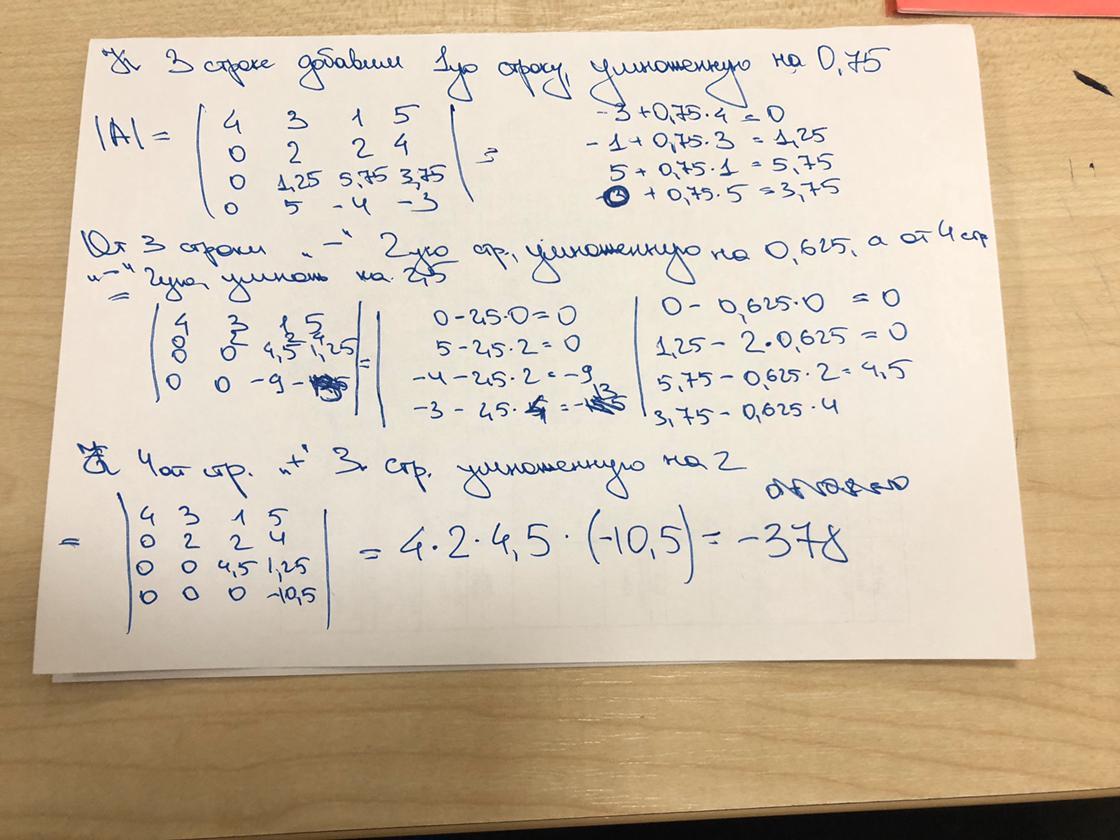 К 3 строке добавим 1ую строку, умноженную на 0,75
|A| = | 4 3 1 5 | =
0 2 2 4
0 1,25 5,75 3,75
0 5 -4 -3
-3 + 0,75·4 = 0
-1 + 0,75·3 = 1,25
5 + 0,75·1 = 5,75
+ 0,75·5 = 3,75
От 3 строки „-“ 2ую стр., умноженную на 0,625, а от 4 стр
„-“ 2ую, умнож на 2,5
= | 4 3 1 5 | =
0 2 2 4
0 0 4,5 1,25
0 0 -9 -
0 - 2,5·0 = 0
5 - 2,5·2 = 0
-4 - 2,5·2 = -9
-3 - 2,5· = -13
0 - 0,625·0 = 0
1,25 - 2·0,625 = 0
5,75 - 0,625·2 = 4,5
3,75 - 0,625·4
4ой стр. „+“ 3 стр. умноженную на 2
= | 4 3 1 5 | = 4·2·4,5·(-10,5) = -378
0 2 2 4
0 0 4,5 1,25
0 0 0 -10,5